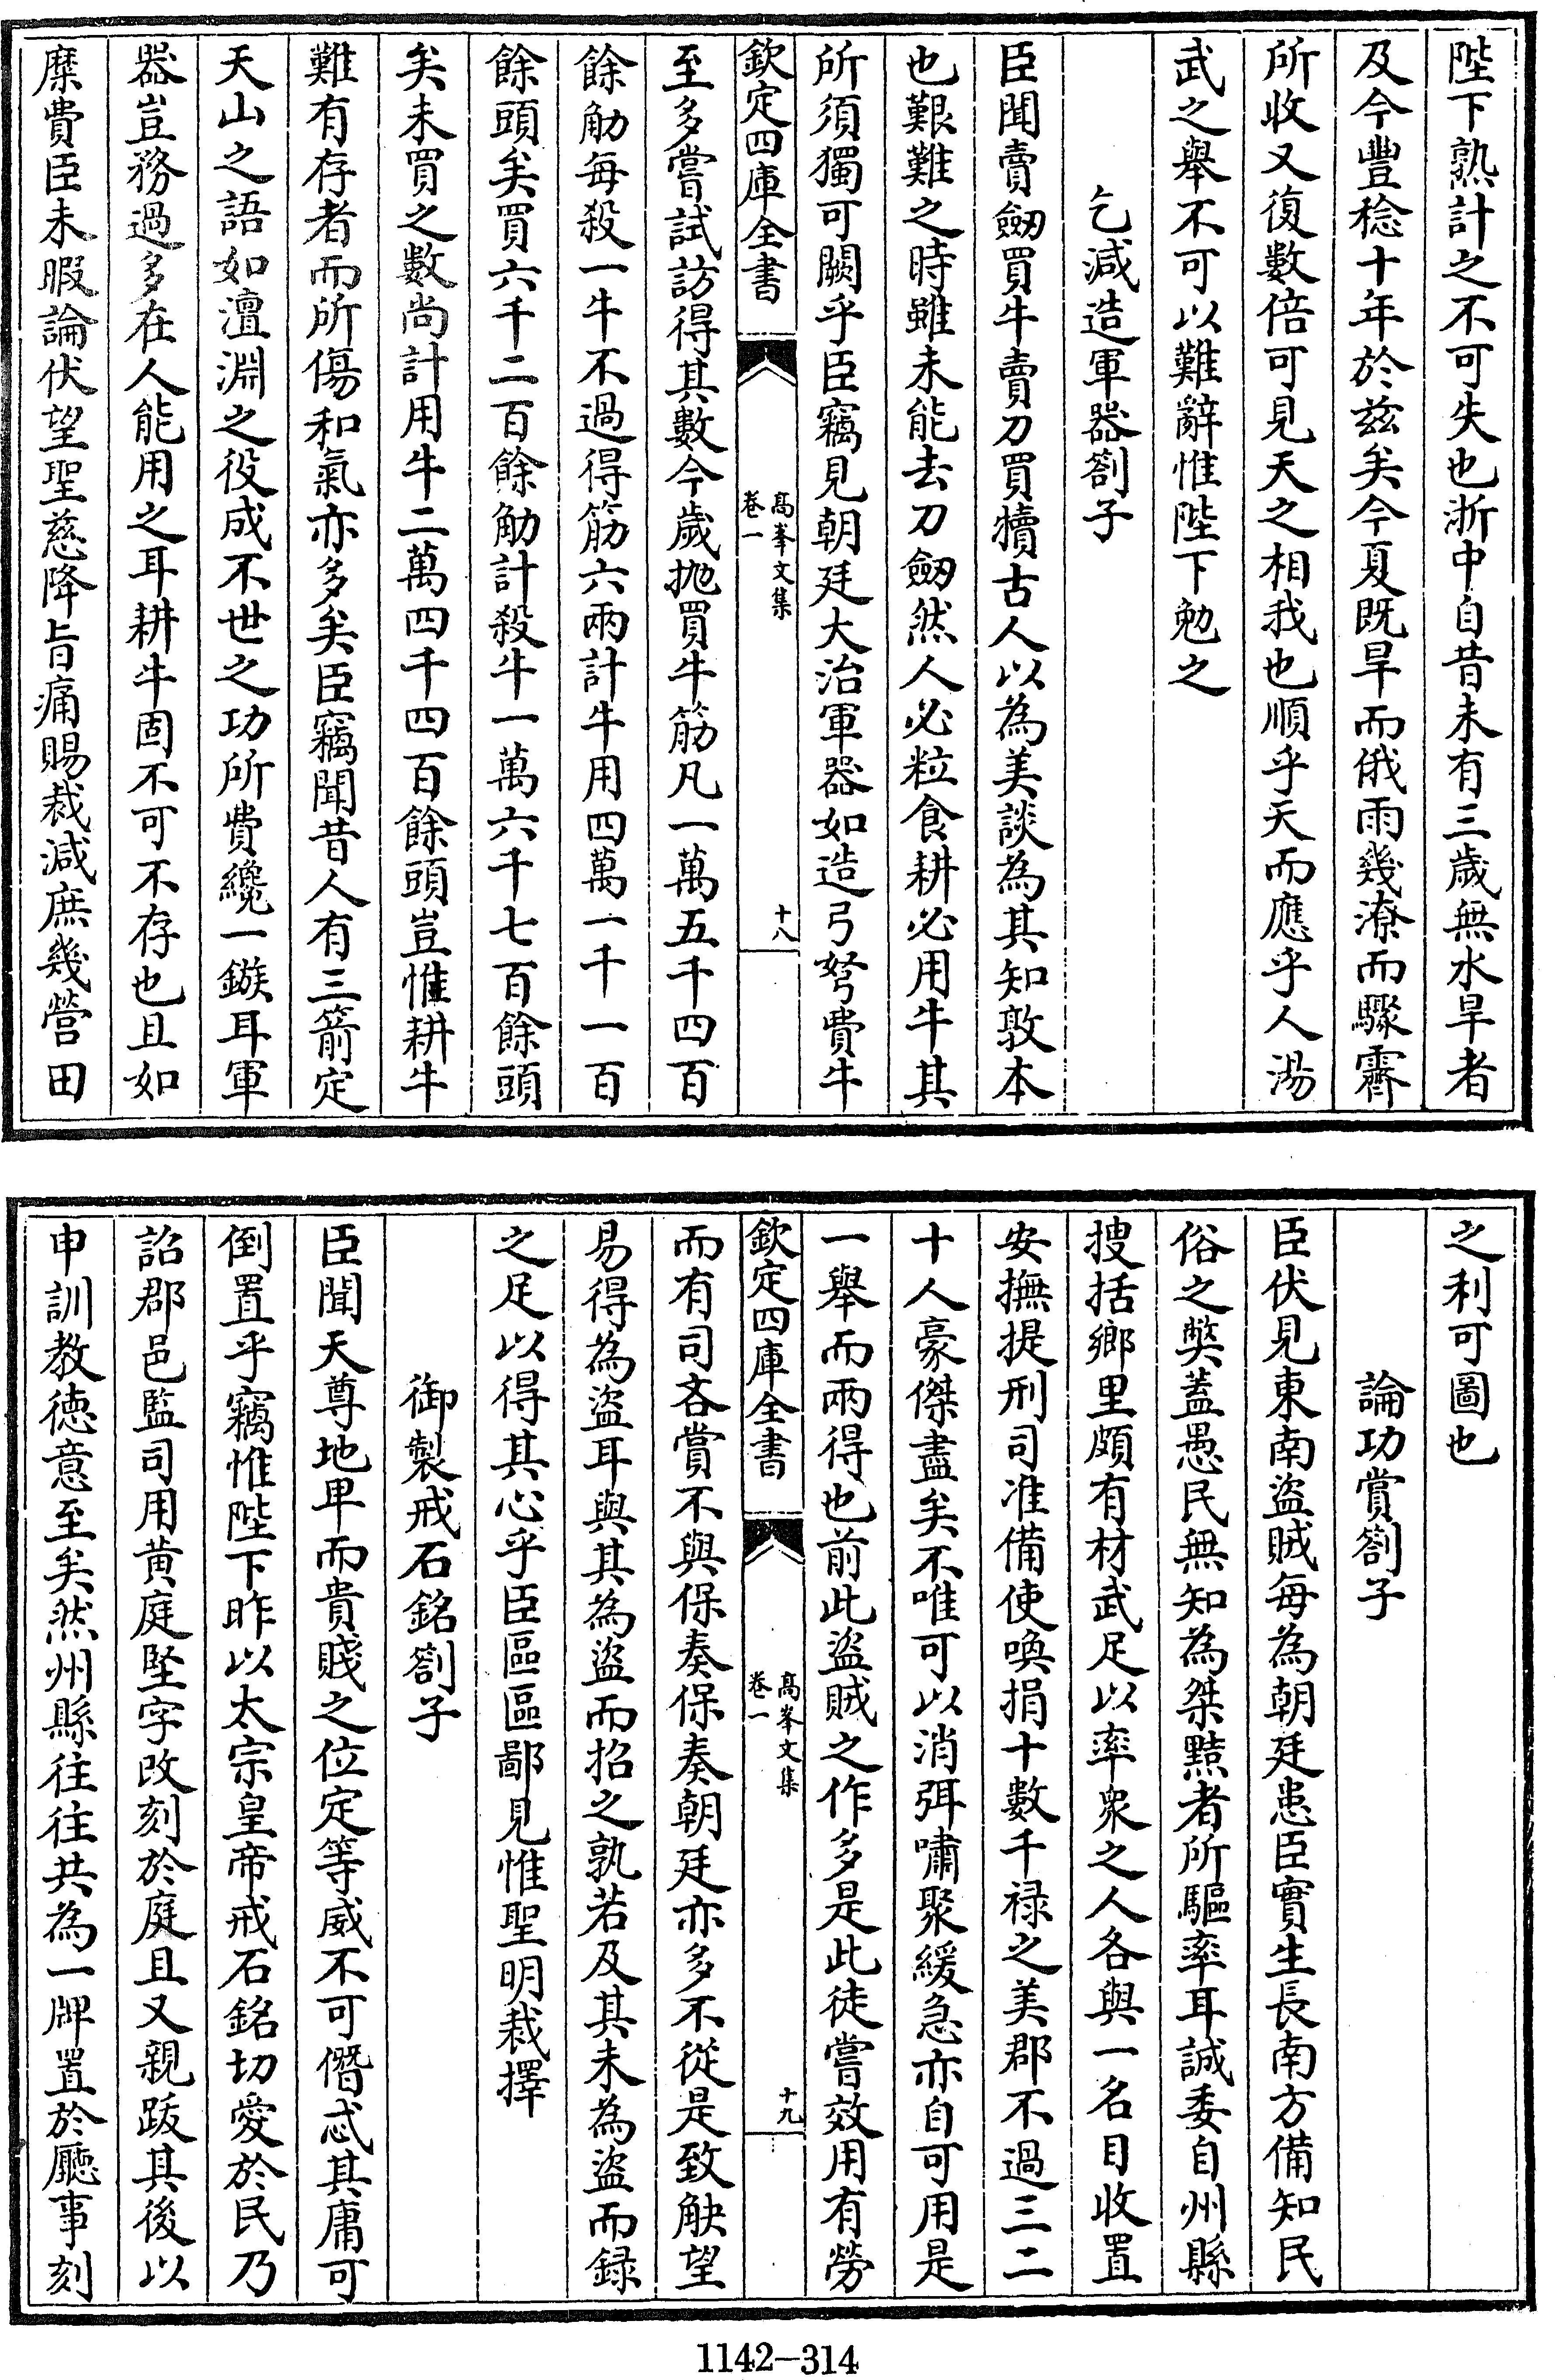 陛下熟計之不可失也浙中自昔未有三歲無水旱者
及今豐稔十年於兹矣今夏既旱而俄雨幾潦而驟霽
所收又復數倍可見天之相我也順乎天而應乎人湯
武之舉不可以難辭惟陛下勉之
乞減造軍器劄子
臣聞賣劒買牛賣刀買犢古人以為美談為其知敦本
也艱難之時雖未能去刀劒然人必粒食耕必用牛其
所須獨可闕乎臣竊見朝廷大治軍器如造弓弩費牛
欽定四庫全書
高峯文集
卷一
十八
至多嘗試訪得其數今歲抛買牛筋凡一萬五千四百
餘觔每殺一牛不過得筋六兩計牛用四萬一千一百
餘頭矣買六千二百餘觔計殺牛一萬六千七百餘頭
矣未買之數尚計用牛二萬四千四百餘頭豈惟耕牛
難有存者而所傷和氣亦多矣臣竊聞昔人有三箭定
天山之語如澶淵之役成不世之功所費纔一鏃耳軍
器豈務過多在人能用之耳耕牛固不可不存也且如
糜費臣未暇論伏望聖慈降旨痛賜裁減庶幾營田
之利可圖也
論功賞劄子
臣伏見東南盜賊每為朝廷患臣實生長南方備知民
俗之獘蓋愚民無知為桀黠者所驅率耳誠委自州縣
搜括鄉里頗有材武足以率衆之人各與一名目收置
安撫提刑司准備使喚捐十數千祿之美郡不過三二
十人豪傑盡矣不唯可以消弭嘯聚緩急亦自可用是
一舉而兩得也前此盜賊之作多是此徒嘗效用有勞
欽定四庫全書
高峯文集
卷一
十九
而有司吝賞不與保奏保奏朝廷亦多不從是致觖望
易得為盜耳與其為盜而招之孰若及其未為盜而録
之足以得其心乎臣區區鄙見惟聖明裁擇
御製戒石銘劄子
臣聞天尊地卑而貴賤之位定等威不可僭忒其庸可
倒置乎竊惟陛下昨以太宗皇帝戒石銘切愛於民乃
詔郡邑監司用黄庭堅字改刻於庭且又親跋其後以
申訓教徳意至矣然州縣往往共為一牌置於廳事刻
1142-314